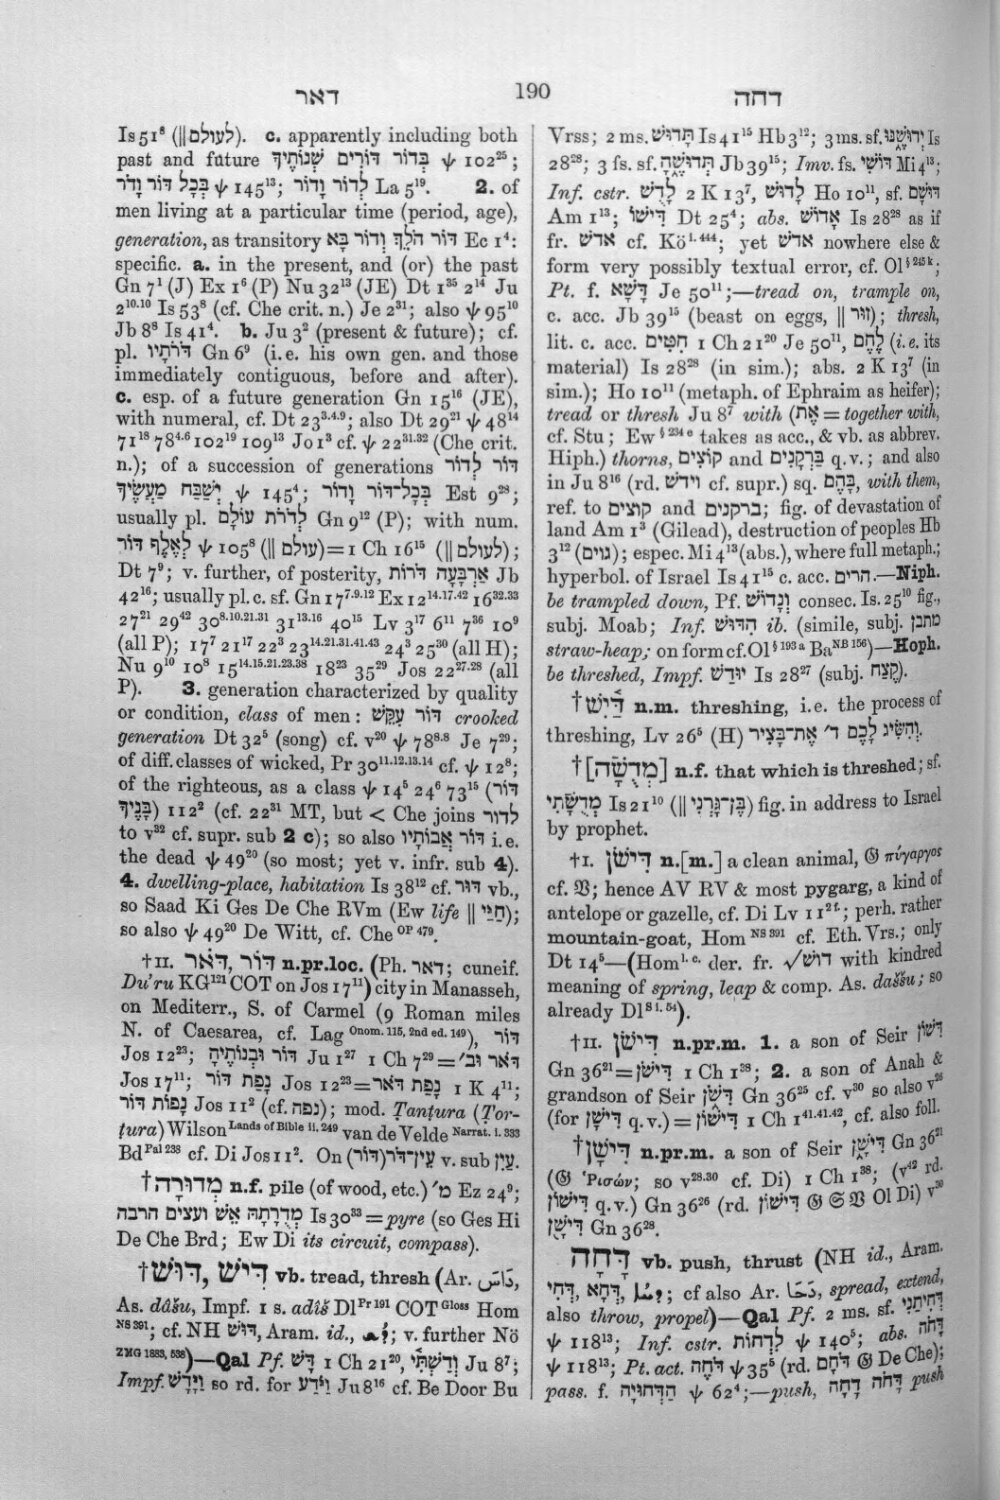 דאר
190
דחה
Is 51⁸ (‖ לעולם). c. apparently including both
past and future בְּדוֹר דּוֹרִים שְׁנוֹתֶיךָ ψ 102²⁵;
בְּכָל דּוֹר וָדֹר ψ 145¹³; לְדוֹר וָדוֹר La 5¹⁹. 2. of
men living at a particular time (period, age),
generation, as transitory דּוֹר הֹלֵךְ וְדוֹר בָּא Ec 1⁴:
specific. a. in the present, and (or) the past
Gn 7¹ (J) Ex 1⁶ (P) Nu 32¹³ (JE) Dt 1³⁵ 2¹⁴ Ju
2¹⁰·¹⁰ Is 53⁸ (cf. Che crit. n.) Je 2³¹; also ψ 95¹⁰
Jb 8⁸ Is 41⁴. b. Ju 3² (present & future); cf.
pl. דֹּרֹתָיו Gn 6⁹ (i.e. his own gen. and those
immediately contiguous, before and after).
c. esp. of a future generation Gn 15¹⁶ (JE),
with numeral, cf. Dt 23³·⁴·⁹; also Dt 29²¹ ψ 48¹⁴
71¹⁸ 78⁴·⁶ 102¹⁹ 109¹³ Jo 1³ cf. ψ 22³¹·³² (Che crit.
n.); of a succession of generations דּוֹר לְדוֹר
יְשַׁבַּח מַעֲשֶׂיךָ ψ 145⁴; בְּכָל־דּוֹר וָדוֹר Est 9²⁸;
usually pl. לְדֹרֹת עוֹלָם Gn 9¹² (P); with num.
לְאֶלֶף דּוֹר ψ 105⁸ (‖ עולם) = 1 Ch 16¹⁵ (‖ לעולם);
Dt 7⁹; v. further, of posterity, אַרְבָּעָה דֹּרוֹת Jb
42¹⁶; usually pl. c. sf. Gn 17⁷·⁹·¹² Ex 12¹⁴·¹⁷·⁴² 16³²·³³
27²¹ 29⁴² 30⁸·¹⁰·²¹·³¹ 31¹³·¹⁶ 40¹⁵ Lv 3¹⁷ 6¹¹ 7³⁶ 10⁹
(all P); 17⁷ 21¹⁷ 22³ 23¹⁴·²¹·³¹·⁴¹·⁴³ 24³ 25³⁰ (all H);
Nu 9¹⁰ 10⁸ 15¹⁴·¹⁵·²¹·²³·³⁸ 18²³ 35²⁹ Jos 22²⁷·²⁸ (all
P). 3. generation characterized by quality
or condition, class of men: דּוֹר עִקֵּשׁ crooked
generation Dt 32⁵ (song) cf. v²⁰ ψ 78⁸·⁸ Je 7²⁹;
of diff. classes of wicked, Pr 30¹¹·¹²·¹³·¹⁴ cf. ψ 12⁸;
of the righteous, as a class ψ 14⁵ 24⁶ 73¹⁵ (דּוֹר
בָּנֶיךָ) 112² (cf. 22³¹ MT, but < Che joins לדור
to v³² cf. supr. sub 2 c); so also דּוֹר אֲבוֹתָיו i.e.
the dead ψ 49²⁰ (so most; yet v. infr. sub 4).
4. dwelling-place, habitation Is 38¹² cf. דּוּר vb.,
so Saad Ki Ges De Che RVm (Ew life ‖ חַיַּי);
so also ψ 49²⁰ De Witt, cf. Che ᴼᴾ ⁴⁷⁹.
†II. דּוֹר, דֹּאר n.pr.loc. (Ph. דאר; cuneif.
Du’ru KG¹²¹ COT on Jos 17¹¹) city in Manasseh,
on Mediterr., S. of Carmel (9 Roman miles
N. of Caesarea, cf. Lag Onom. 115, 2nd ed. 149), דּוֹר
Jos 12²³; דּוֹר וּבְנוֹתֶיהָ Ju 1²⁷ 1 Ch 7²⁹ = דֹּאר וּב׳
Jos 17¹¹; נָפַת דּוֹר Jos 12²³ = נָפַת דֹּאר 1 K 4¹¹;
נָפוֹת דּוֹר Jos 11² (cf. נפה); mod. Ṭanṭura (Ṭor-
ṭura) Wilson Lands of Bible ii. 249 van de Velde Narrat. i. 333
Bd Pal 238 cf. Di Jos 11². On עֵין־דֹּר(דּוֹר) v. sub עַיִן.
†מְדוּרָה n.f. pile (of wood, etc.) מ׳ Ez 24⁹;
מְדֻרָתָהּ אֵשׁ ועצים הרבה Is 30³³ = pyre (so Ges Hi
De Che Brd; Ew Di its circuit, compass).
†דִּישׁ, דּוּשׁ vb. tread, thresh (Ar. دَاسَ,
As. dâšu, Impf. 1 s. adîš Dl Pr 191 COT Gloss Hom
NS 391; cf. NH דּוּשׁ, Aram. id., ; v. further Nö
ZMG 1883, 538)—Qal Pf. דָּשׁ 1 Ch 21²⁰, וְדַשְׁתִּי Ju 8⁷;
Impf. וַיָּדָשׁ so rd. for וַיֹּדַע Ju 8¹⁶ cf. Be Door Bu
Vrss; 2 ms. תָּדוּשׁ Is 41¹⁵ Hb 3¹²; 3 ms. sf. יְדוּשֶׁנּוּ Is
28²⁸; 3 fs. sf. תְּדוּשֶׁהָ Jb 39¹⁵; Imv. fs. דּוֹשִׁי Mi 4¹³;
Inf. cstr. לָדֻשׁ 2 K 13⁷, לָדוּשׁ Ho 10¹¹, sf. דּוּשָׁם
Am 1³; דִּישׁוֹ Dt 25⁴; abs. אָדוֹשׁ Is 28²⁸ as if
fr. אדשׁ cf. Kö I. 444; yet אדשׁ nowhere else &
form very possibly textual error, cf. Ol § 245 k;
Pt. f. דָּשָׁא Je 50¹¹;—tread on, trample on,
c. acc. Jb 39¹⁵ (beast on eggs, ‖ זוּר); thresh,
lit. c. acc. חִטִּים 1 Ch 21²⁰ Je 50¹¹, לֶחֶם (i.e. its
material) Is 28²⁸ (in sim.); abs. 2 K 13⁷ (in
sim.); Ho 10¹¹ (metaph. of Ephraim as heifer);
tread or thresh Ju 8⁷ with (אֶת = together with,
cf. Stu; Ew § 234 e takes as acc., & vb. as abbrev.
Hiph.) thorns, קוֹצִים and בַּרְקָנִים q.v.; and also
in Ju 8¹⁶ (rd. וידשׁ cf. supr.) sq. בָּהֶם, with them,
ref. to קוצים and ברקנים; fig. of devastation of
land Am 1³ (Gilead), destruction of peoples Hb
3¹² (גוים); espec. Mi 4¹³ (abs.), where full metaph.;
hyperbol. of Israel Is 41¹⁵ c. acc. הרים.—Niph.
be trampled down, Pf. וְנָדוֹשׁ consec. Is. 25¹⁰ fig.,
subj. Moab; Inf. הִדּוּשׁ ib. (simile, subj. מתבן
straw-heap; on form cf. Ol § 193 a Ba NB 156)—Hoph.
be threshed, Impf. יוּדַשׁ Is 28²⁷ (subj. קֶצַח).
†דַּיִשׁ n.m. threshing, i.e. the process of
threshing, Lv 26⁵ (H) וְהִשִּׂיג לָכֶם ד׳ אֶת־בָּצִיר.
†[מְדֻשָׁה] n.f. that which is threshed; sf.
מְדֻשָׁתִי Is 21¹⁰ (‖ בֶּן־גָּרְנִי) fig. in address to Israel
by prophet.
†I. דִּישֹׁן n.[m.] a clean animal, 𝔊 πύγαργος
cf. 𝔙; hence AV RV & most pygarg, a kind of
antelope or gazelle, cf. Di Lv 11²ᶠ·; perh. rather
mountain-goat, Hom NS 391 cf. Eth. Vrs.; only
Dt 14⁵—(Hom l. c. der. fr. √דושׁ with kindred
meaning of spring, leap & comp. As. daššu; so
already Dl S 1. 54).
†II. דִּישֹׁן n.pr.m. 1. a son of Seir דִּשׁוֹן
Gn 36²¹ = דִּישֹׁן 1 Ch 1³⁸; 2. a son of Anah &
grandson of Seir דִּשֹׁן Gn 36²⁵ cf. v³⁰ so also v²⁶
(for דִּישָׁן q.v.) = דִּישׁוֹן 1 Ch 1⁴¹·⁴¹·⁴², cf. also foll.
†דִּישָׁן n.pr.m. a son of Seir דִּישָׁן Gn 36²¹
(𝔊 Ῥισών; so v²⁸·³⁰ cf. Di) 1 Ch 1³⁸; (v⁴² rd.
דִּישׁוֹן q.v.) Gn 36²⁶ (rd. דִּישׁוֹן 𝔊 𝔖 𝔙 Ol Di) v³⁰
דִּישָׁן Gn 36²⁸.
דָּחָה vb. push, thrust (NH id., Aram.
דְּחָא, דְּחֵי, ; cf also Ar. دَحَا, spread, extend,
also throw, propel)—Qal Pf. 2 ms. sf. דְּחִיתַנִי
ψ 118¹³; Inf. cstr. לִדְחוֹת ψ 140⁵; abs. דָּחֹה
ψ 118¹³; Pt. act. דֹּחֶה ψ 35⁵ (rd. דֹּחָם 𝔊 De Che);
pass. f. הַדְּחוּיָה ψ 62⁴;—push, דָּחֹה דָחָה push